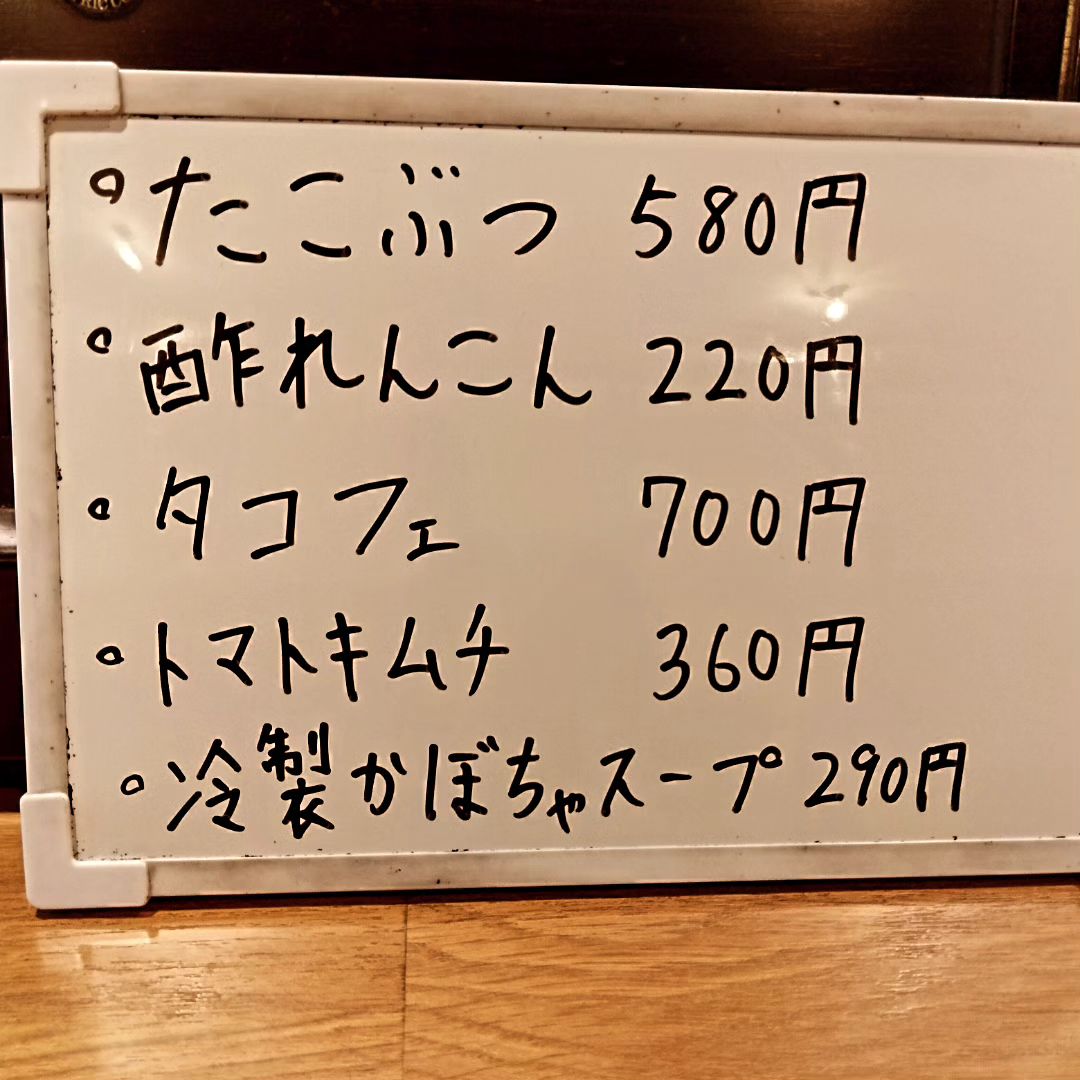 。たこぶつ 580円
。酢れんこん 220円
。タコフェ 700円
。トマトキムチ 360円
。冷製かぼちゃスープ 290円